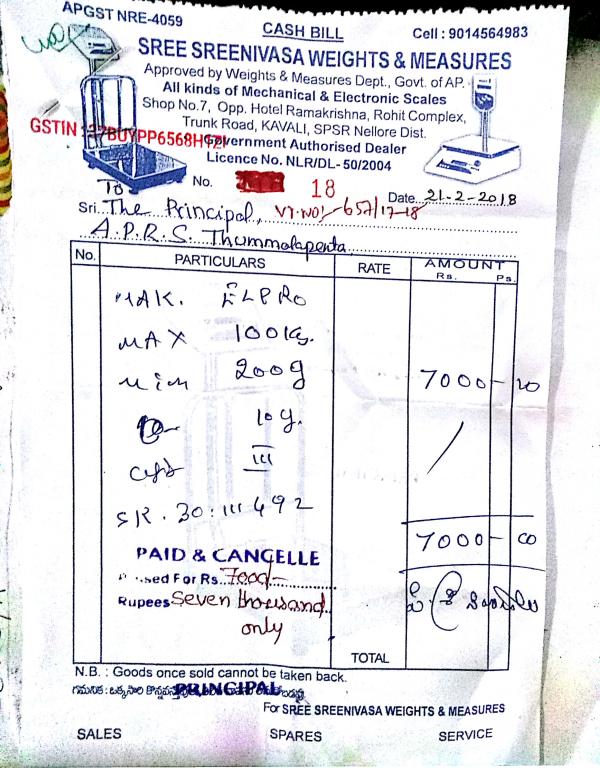 APGST NRE-4059
CASH BILL
Cell : 9014564983
SREE SREENIVASA WEIGHTS & MEASURES
Approved by Weights & Measures Dept., Govt. of AP.
All kinds of Mechanical & Electronic Scales
Shop No.7, Opp. Hotel Ramakrishna, Rohit Complex,
Trunk Road, KAVALI, SPSR Nellore Dist.
GSTIN
Government Authorised Dealer
Licence No. NLR/DL- 50/2004
To
No. 18
Date 21-2-2018
Sri. The Principal, VT.NO:-657/17-18
A.P.R.S. Thummalapenta
No. PARTICULARS RATE AMOUNT
Rs. Ps.
MAK. ELPRO
MAX 100 Kg.
Min 200g 7000-00
e- 10g.
III
SR. 30:111492
7000-00
PAID & CANCELLE
sed For Rs. 7000/-
Rupees Seven thousand
only
TOTAL
N.B. : Goods once sold cannot be taken back.
గమనిక : ఒక్కసారి
PRINCIPAL
For SREE SREENIVASA WEIGHTS & MEASURES
SALES SPARES SERVICE